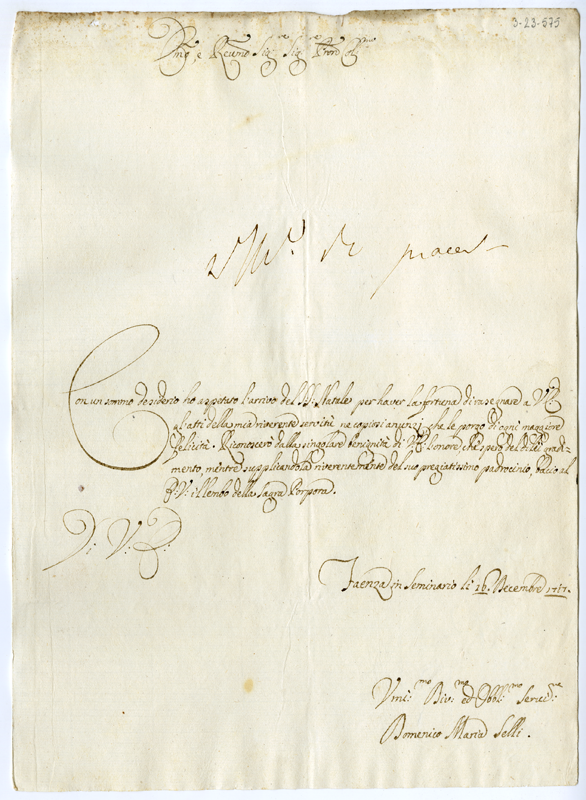 3-23-575
Em̃o, e Reu̅mo Sig:re Sig:re Pron̄ Col:mo
Con un sommo desiderio ho aspetato l'arrivo del SS: Natale per haver la fortuna di rasegnare a V: E:
gl'atti della mia riverente servitù ne copiosi anunzj, che le porgo di ogni maggiore
felicità. Riconoscerò dalla singolare benignità di V: E: l'onore, che spero del di lei gradi-
mento, mentre supplicandola riverentemente del suo pregiatissimo padrocinio, bacio al
E: V: il lembo della Sagra Porpora.
Di V: E:
Faenza in Seminario li 16. Decembre 1717.
Vmi:mo Div:mo ed Obbl:mo Servi:re
Domenico Maria Selli.